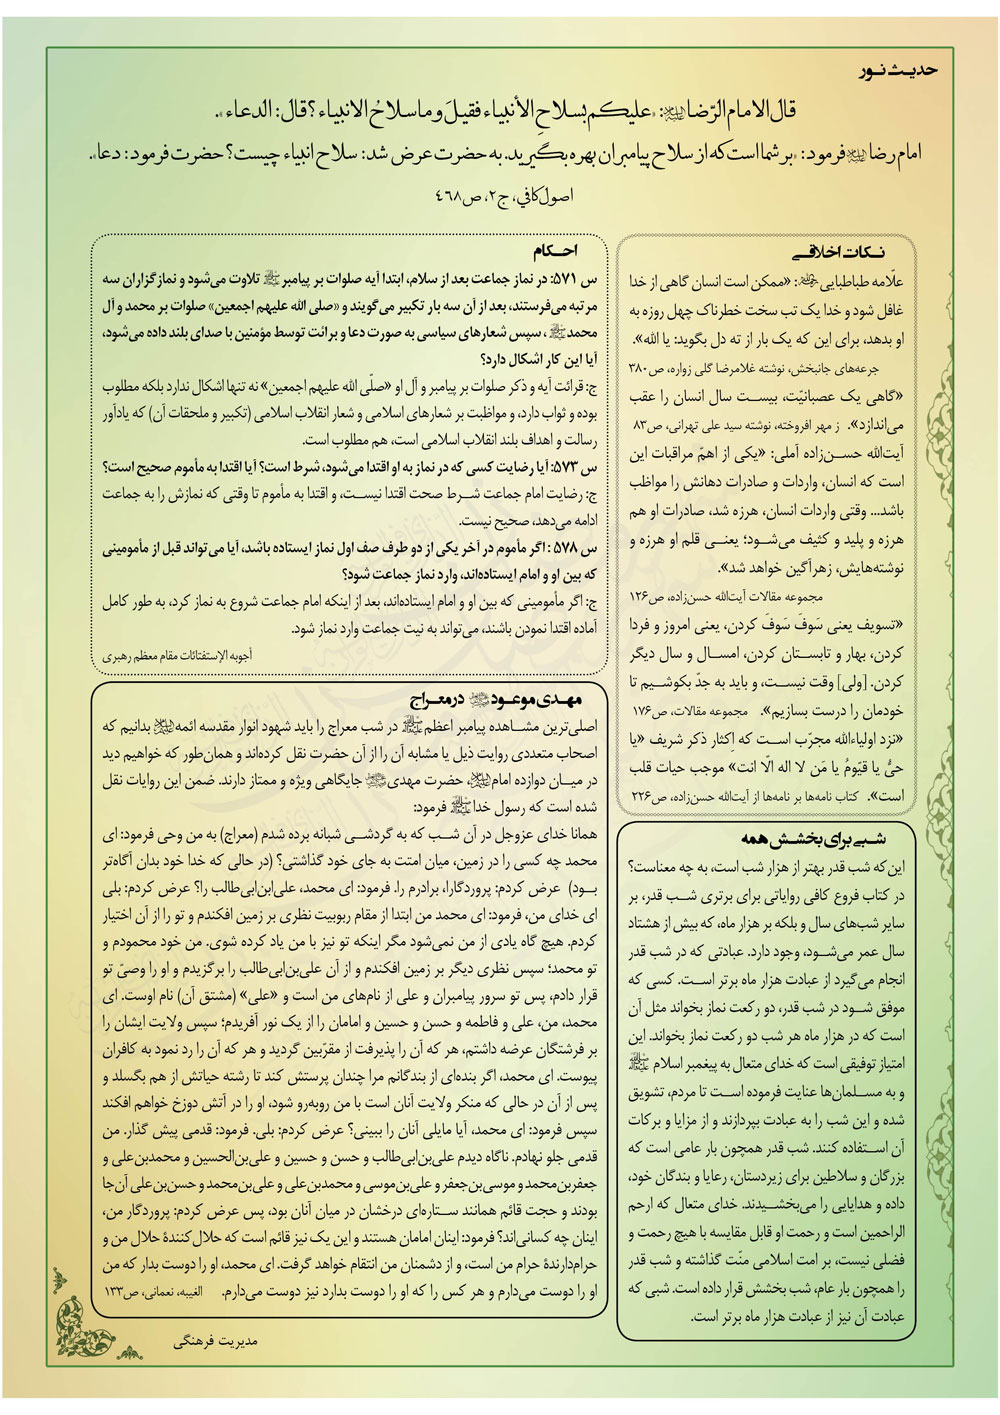 حدیث نور
قال الامام الرّضا علیه‌السلام: «علیکم بسلاحِ الأنبیاء فقیلَ و ما سلاحُ الانبیاء؟ قالَ: الدعاء».
امام رضا علیه‌السلام فرمود: «بر شما است که از سلاح پیامبران بهره بگیرید. به حضرت عرض شد: سلاح انبیاء چیست؟ حضرت فرمود: دعا».
اصول کافي، ج۲، ص۴۶۸
نکات اخلاقی
علّامه طباطبایی: «ممکن است انسان گاهی از خدا
غافل شود و خدا یک تب سخت خطرناک چهل روزه به
او بدهد، برای این که یک بار از ته دل بگوید: یا الله».
جرعه‌های جانبخش، نوشته غلامرضا گلی زواره، ص۳۸۰
«گاهی یک عصبانیّت، بیست سال انسان را عقب
می‌اندازد». ز مهر افروخته، نوشته سید علی تهرانی، ص۸۳
آیت‌الله حسن‌زاده آملی: «یکی از اهمّ مراقبات این
است که انسان، واردات و صادرات دهانش را مواظب
باشد... وقتی واردات انسان، هرزه شد، صادرات او هم
هرزه و پلید و کثیف می‌شود؛ یعنی قلم او هرزه و
نوشته‌هایش، زهرآگین خواهد شد».
مجموعه مقالات آیت‌الله حسن‌زاده، ص۱۲۶
«تسویف یعنی سَوفَ سَوفَ کردن، یعنی امروز و فردا
کردن، بهار و تابستان کردن، امسال و سال دیگر
کردن. [ولی] وقت نیست، و باید به جدّ بکوشیم تا
خودمان را درست بسازیم». مجموعه مقالات، ص۱۷۶
«نزد اولیاءالله مجرّب است که اِکثار ذکر شریف «یا
حیُّ یا قیّومُ یا مَن لا اله الّا انت» موجب حیات قلب
است». کتاب نامه‌ها بر نامه‌ها از آیت‌الله حسن‌زاده، ص۲۲۶
شبی برای بخشش همه
این‌که شب قدر بهتر از هزار شب است، به چه معناست؟
در کتاب فروع کافی روایاتی برای برتری شب قدر، بر
سایر شب‌های سال و بلکه بر هزار ماه، که بیش از هشتاد
سال عمر می‌شود، وجود دارد. عبادتی که در شب قدر
انجام می‌گیرد از عبادت هزار ماه برتر است. کسی که
موفق شود در شب قدر، دو رکعت نماز بخواند مثل آن
است که در هزار ماه هر شب دو رکعت نماز بخواند. این
امتیاز توفیقی است که خدای متعال به پیغمبر اسلام ﷺ
و به مسلمان‌ها عنایت فرموده است تا مردم، تشویق
شده و این شب را به عبادت بپردازند و از مزایا و برکات
آن استفاده کنند. شب قدر همچون بار عامی است که
بزرگان و سلاطین برای زیردستان، رعایا و بندگان خود،
داده و هدایایی را می‌بخشیدند. خدای متعال که ارحم
الراحمین است و رحمت او قابل مقایسه با هیچ رحمت و
فضلی نیست، بر امت اسلامی منّت گذاشته و شب قدر
را همچون بار عام، شب بخشش قرار داده است. شبی که
عبادت آن نیز از عبادت هزار ماه برتر است.
احکام
س ۵۷۱: در نماز جماعت بعد از سلام، ابتدا آیه صلوات بر پیامبر ﷺ تلاوت می‌شود و نمازگزاران سه
مرتبه می‌فرستند، بعد از آن سه بار تکبیر می‌گویند و «صلی الله علیهم اجمعین» صلوات بر محمد و آل
محمد ﷺ، سپس شعارهای سیاسی به صورت دعا و برائت توسط مؤمنین با صدای بلند داده می‌شود،
آیا این کار اشکال دارد؟
ج: قرائت آیه و ذکر صلوات بر پیامبر و آل او «صلّی الله علیهم اجمعین» نه تنها اشکال ندارد بلکه مطلوب
بوده و ثواب دارد، و مواظبت بر شعارهای اسلامی و شعار انقلاب اسلامی (تکبیر و ملحقات آن) که یادآور
رسالت و اهداف بلند انقلاب اسلامی است، هم مطلوب است.
س ۵۷۳: آیا رضایت کسی که در نماز به او اقتدا می‌شود، شرط است؟ آیا اقتدا به مأموم صحیح است؟
ج: رضایت امام جماعت شرط صحت اقتدا نیست، و اقتدا به مأموم تا وقتی که نمازش را به جماعت
ادامه می‌دهد، صحیح نیست.
س ۵۷۸: اگر مأموم در آخر یکی از دو طرف صف اول نماز ایستاده باشد، آیا می‌تواند قبل از مأمومینی
که بین او و امام ایستاده‌اند، وارد نماز جماعت شود؟
ج: اگر مأمومینی که بین او و امام ایستاده‌اند، بعد از اینکه امام جماعت شروع به نماز کرد، به طور کامل
آماده اقتدا نمودن باشند، می‌تواند به نیت جماعت وارد نماز شود.
أجوبه الإستفتائات مقام معظم رهبری
مهدی موعود در معراج
اصلی‌ترین مشاهده پیامبر اعظم ﷺ در شب معراج را باید شهود انوار مقدسه ائمه بدانیم که
اصحاب متعددی روایت ذیل یا مشابه آن را از آن حضرت نقل کرده‌اند و همان‌طور که خواهیم دید
در میان دوازده امام، حضرت مهدی جایگاهی ویژه و ممتاز دارند. ضمن این روایات نقل
شده است که رسول خدا ﷺ فرمود:
همانا خدای عزوجل در آن شب که به گردشی شبانه برده شدم (معراج) به من وحی فرمود: ای
محمد چه کسی را در زمین، میان امتت به جای خود گذاشتی؟ (در حالی که خدا خود بدان آگاه‌تر
بود) عرض کردم: پروردگارا، برادرم را. فرمود: ای محمد، علی‌ابن‌ابی‌طالب را؟ عرض کردم: بلی
ای خدای من، فرمود: ای محمد من ابتدا از مقام ربوبیت نظری بر زمین افکندم و تو را از آن اختیار
کردم. هیچ گاه یادی از من نمی‌شود مگر اینکه تو نیز با من یاد کرده شوی. من خود محمودم و
تو محمد؛ سپس نظری دیگر بر زمین افکندم و از آن علی‌بن‌ابی‌طالب را برگزیدم و او را وصیّ تو
قرار دادم، پس تو سرور پیامبران و علی از نام‌های من است و «علی» (مشتق آن) نام اوست. ای
محمد، من، علی و فاطمه و حسن و حسین و امامان را از یک نور آفریدم؛ سپس ولایت ایشان را
بر فرشتگان عرضه داشتم، هر که آن را پذیرفت از مقرّبین گردید و هر که آن را رد نمود به کافران
پیوست. ای محمد، اگر بنده‌ای از بندگانم مرا چندان پرستش کند تا رشته حیاتش از هم بگسلد و
پس از آن در حالی که منکر ولایت آنان است با من روبه‌رو شود، او را در آتش دوزخ خواهم افکند
سپس فرمود: ای محمد، آیا مایلی آنان را ببینی؟ عرض کردم: بلی. فرمود: قدمی پیش گذار. من
قدمی جلو نهادم. ناگاه دیدم علی‌بن‌ابی‌طالب و حسن و حسین و علی‌بن‌الحسین و محمدبن‌علی و
جعفربن‌محمد و موسی‌بن‌جعفر و علی‌بن‌موسی و محمدبن‌علی و علی‌بن‌محمد و حسن‌بن‌علی آن‌جا
بودند و حجت قائم همانند ستاره‌ای درخشان در میان آنان بود، پس عرض کردم: پروردگار من،
اینان چه کسانی‌اند؟ فرمود: اینان امامان هستند و این یک نیز قائم است که حلال‌کنندهٔ حلال من و
حرام‌دارندهٔ حرام من است، و از دشمنان من انتقام خواهد گرفت. ای محمد، او را دوست بدار که من
او را دوست می‌دارم و هر کس را که او را دوست بدارد نیز دوست می‌دارم. الغیبه، نعمانی، ص۱۳۳
مدیریت فرهنگی